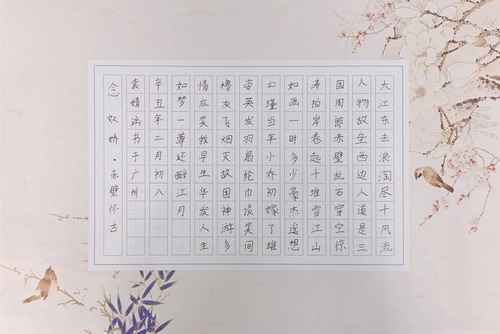 大江东去浪淘尽千风流
人物故垒西边人道是三
国周郎赤壁乱石穿空惊
涛拍岸卷起千堆雪江山
如画一时多少豪杰遥想
公瑾当年小乔初嫁了雄
姿英发羽扇纶巾谈笑间
橹灰飞烟灭故国神游多
情应笑我早生华发人生
如梦一尊还酹江月
辛丑年二月初八
书于广州
念奴娇·赤壁怀古